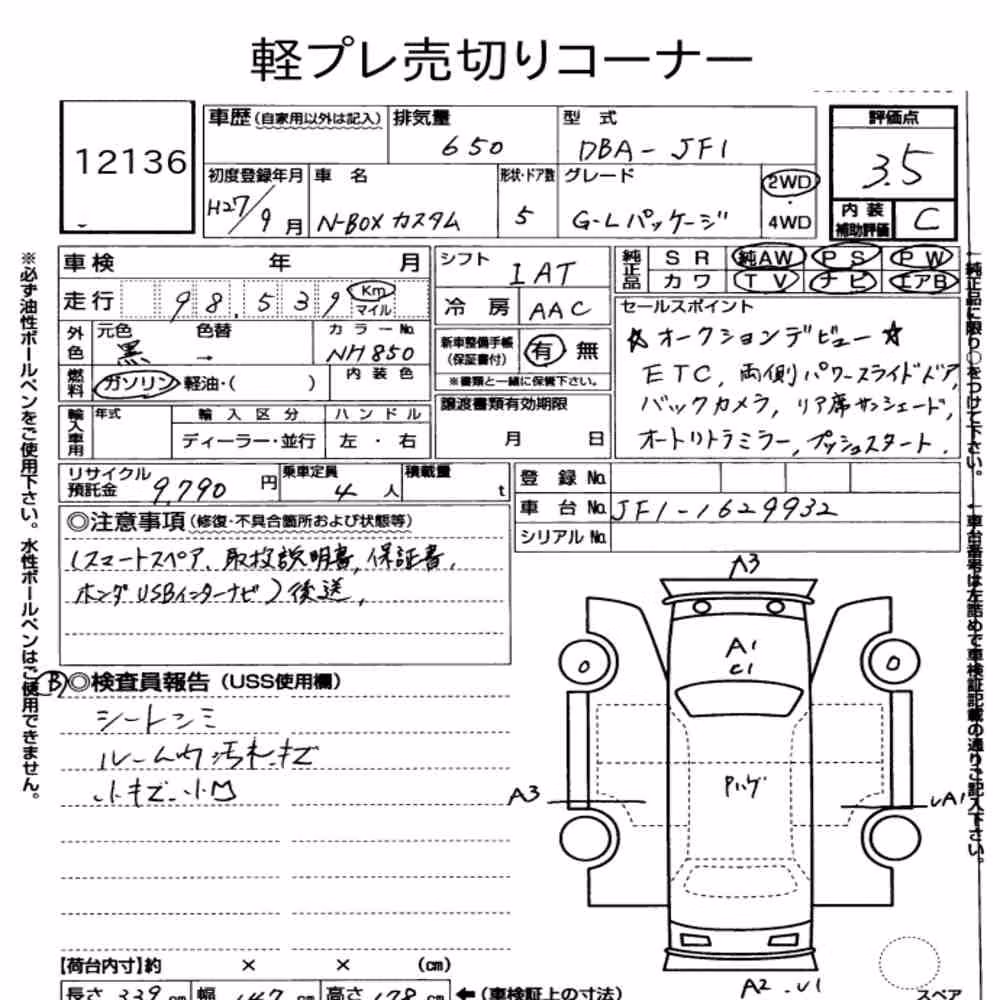 軽プレ売切りコーナー
12136
車歴(自家用以外は記入) 排気量 650 型式 DBA-JF1
評価点 3.5
初度登録年月 H27/9月 車名 N-BOXカスタム 形状・ドア数 5 グレード G-Lパッケージ 2WD・4WD
内装補助評価 C
車検 年 月
シフト IAT
純正品 SR 純AW PS PW
カワ TV ナビ エアB
走行 98,539 Km マイル
冷房 AAC
セールスポイント
☆オークションデビュー☆
ETC, 両側パワースライドドア,
バックカメラ, リア席サンシェード,
オートリトラミラー, プッシュスタート.
外色 元色 黒 色替 → カラーNo. NH850
新車整備手帳(保証書付) 有 無
※書類と一緒に保管下さい。
燃料 ガソリン・軽油・( ) 内装色
譲渡書類有効期限
月 日
輸入車用 年式 輸入区分 ハンドル
ディーラー・並行 左・右
リサイクル預託金 9,790円 乗車定員 4人 積載量 t
登録No.
車台No. JF1-1629932
シリアルNo.
◎注意事項(修復・不具合箇所および状態等)
(スマートスペア, 取扱説明書, 保証書,
ホンダUSBインターナビ)後送,
B ◎検査員報告(USS使用欄)
シートシミ
ルーム内汚れ.キズ
小キズ.小凹
A3
A1
C1
A3
UA1
A2.U1
【荷台内寸】約 × × (cm)
長さ 339 cm 幅 147 cm 高さ 178 cm ←(車検証上の寸法)
スペア
※必ず油性ボールペンをご使用下さい。水性ボールペンはご使用できません。
↑純正品に限り○をつけて下さい。
↑車台番号は左詰めで車検証記載の通りご記入下さい。